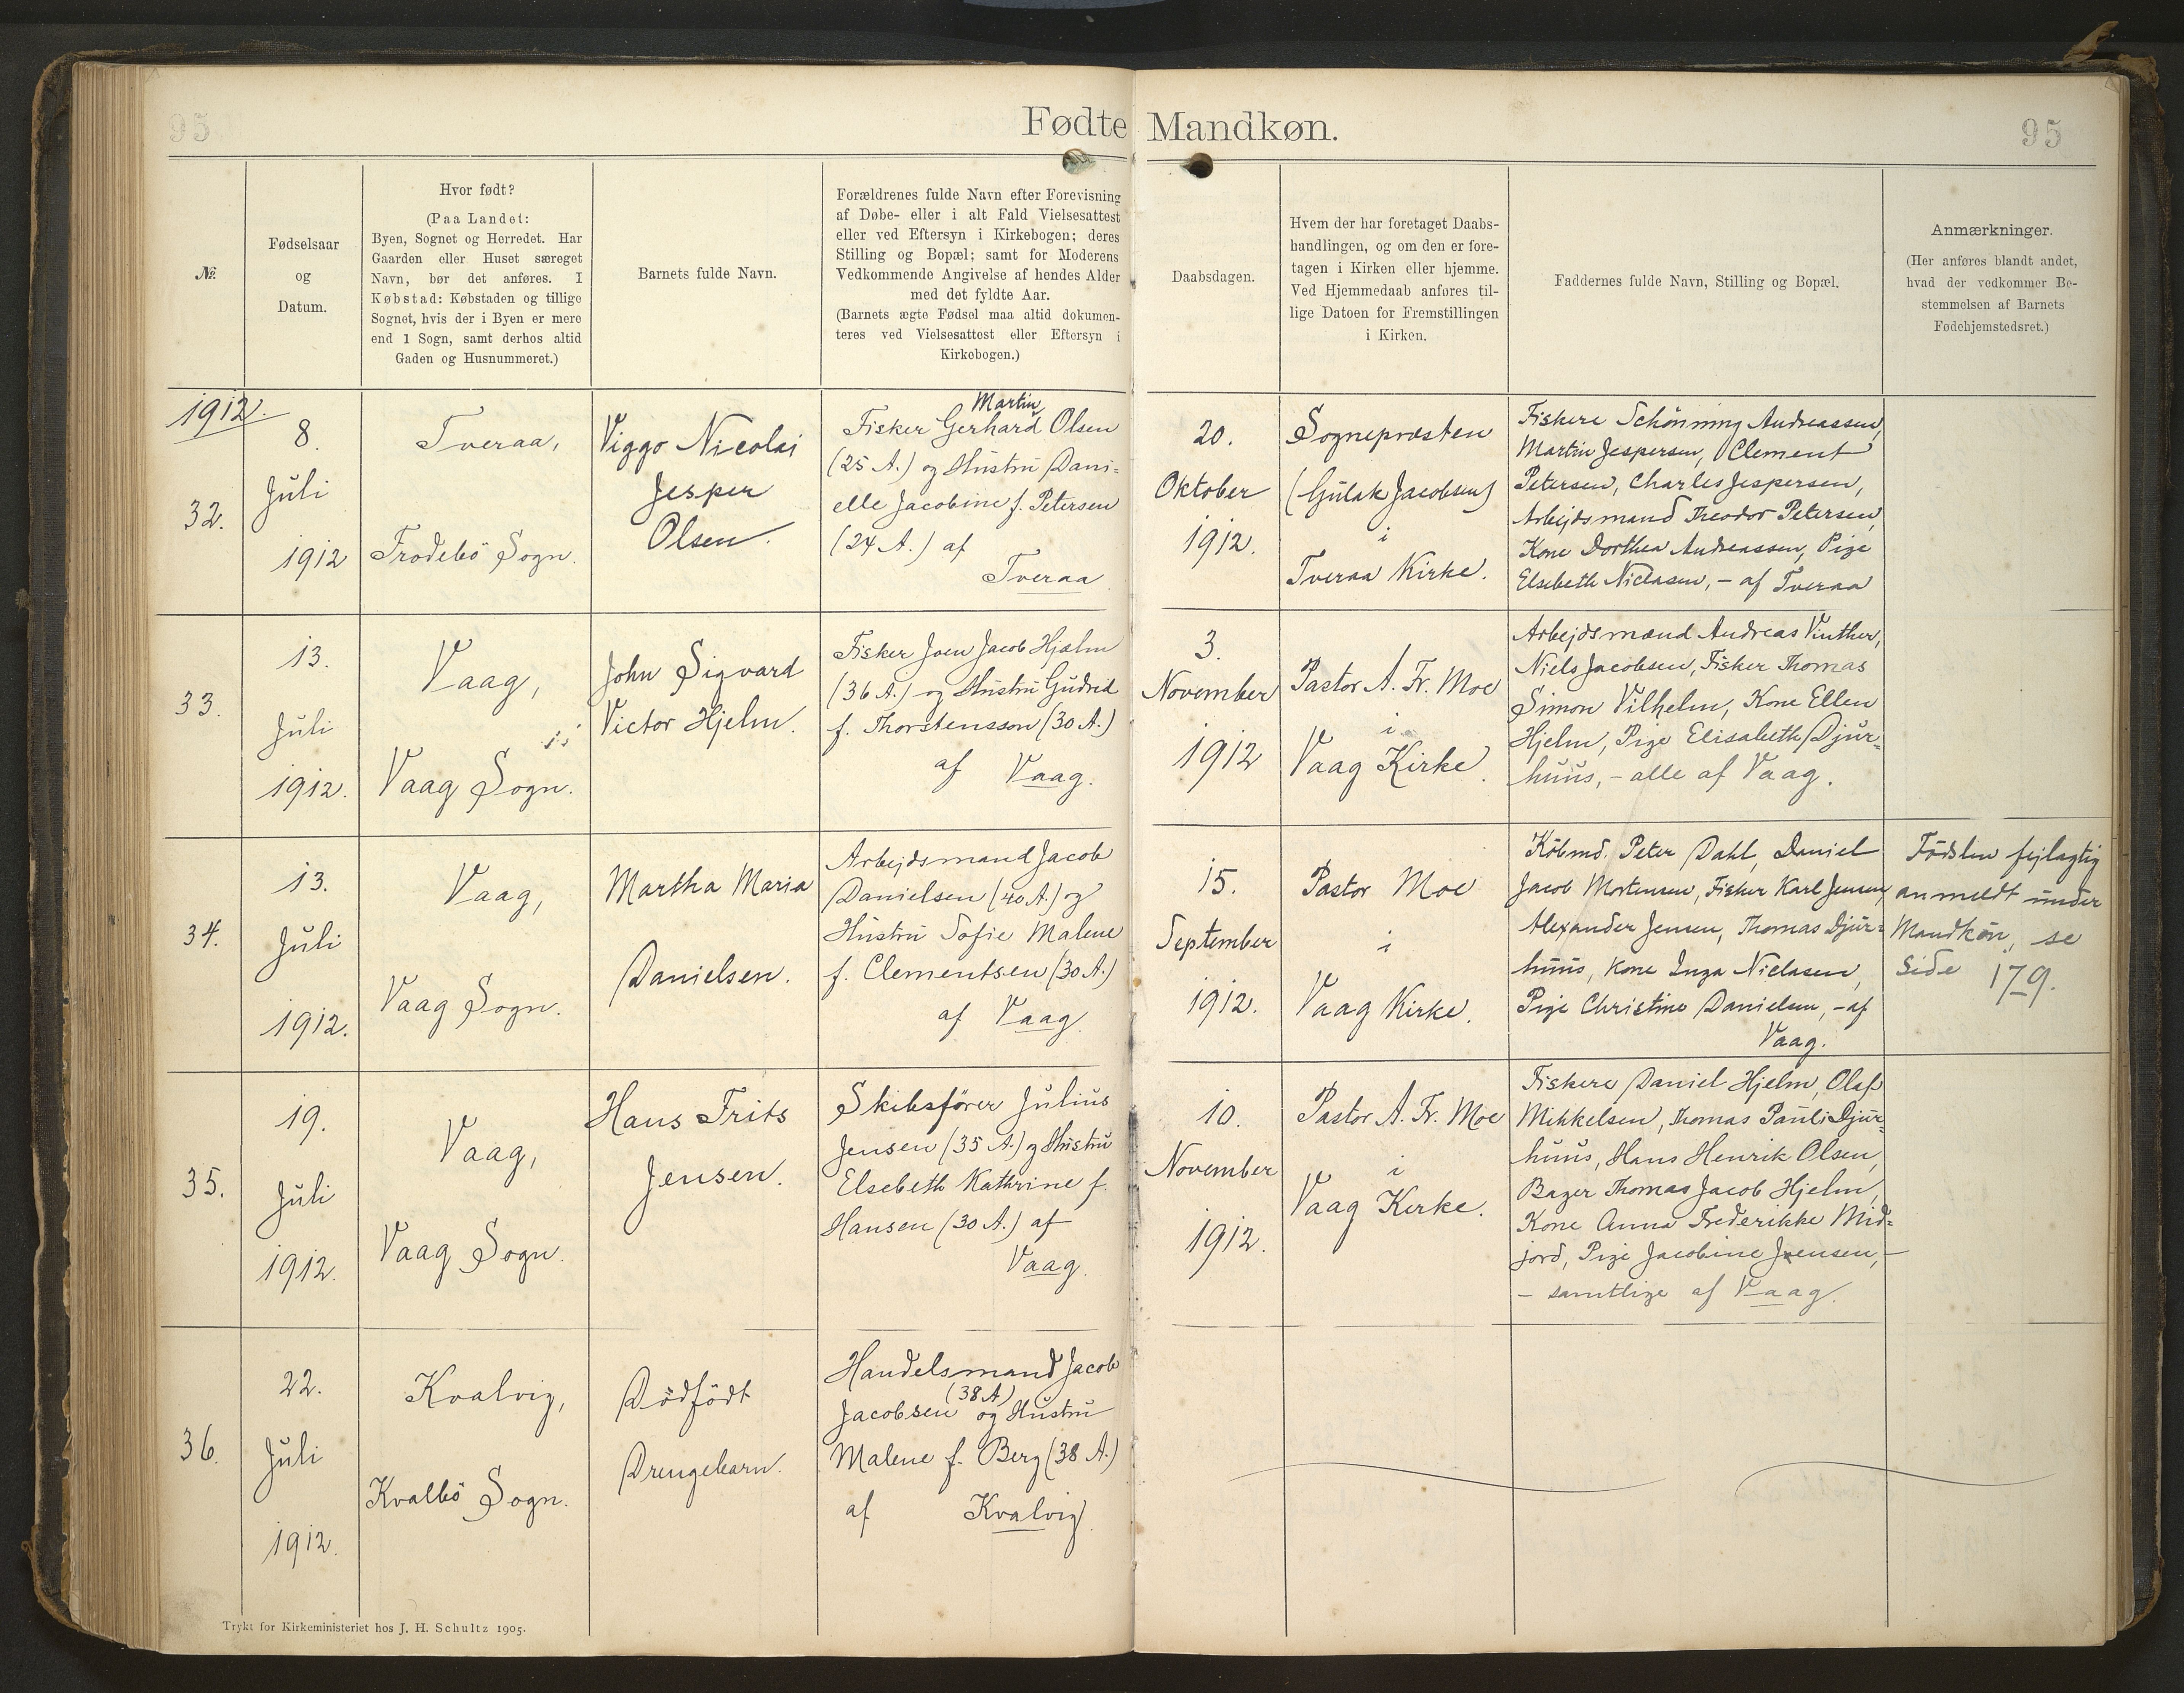 95
Fødte Mandkøn.
95
№.
Fødselsaar
og
Datum.
Hvor født?
(Paa Landet:
Byen, Sognet og Herredet. Har
Gaarden eller Huset særeget
Navn, bør det anføres. I
Købstad: Købstaden og tillige
Sognet, hvis der i Byen er mere
end 1 Sogn, samt derhos altid
Gaden og Husnummeret.)
Barnets fulde Navn.
Forældrenes fulde Navn efter Forevisning
af Døbe- eller i alt Fald Vielsesattest
eller ved Eftersyn i Kirkebogen; deres
Stilling og Bopæl; samt for Moderens
Vedkommende Angivelse af hendes Alder
med det fyldte Aar.
(Barnets ægte Fødsel maa altid dokumen-
teres ved Vielsesattest eller Eftersyn i
Kirkebogen.)
Daabsdagen.
Hvem der har foretaget Daabs-
handlingen, og om den er fore-
tagen i Kirken eller hjemme.
Ved Hjemmedaab anføres til-
lige Datoen for Fremstillingen
i Kirken.
Faddernes fulde Navn, Stilling og Bopæl.
Anmærkninger.
(Her anføres blandt andet,
hvad der vedkommer Be-
stemmelsen af Barnets
Fødehjemstedsret.)
1912.
32.
8.
Juli
1912
Tveraa,
Frodebö Sogn.
Viggo Nicolai
Jesper
Olsen.
Martin
Fisker Gerhard Olsen
(25 A.) og Hustru Dani=
elle Jacobine f. Petersen
(24 A.) af
Tveraa
20.
Oktober
1912.
Sognepræsten
(Gulak Jacobsen)
i
Tveraa Kirke.
Fiskere Schönning Andreassen,
Martin Jespersen, Clement
Petersen, Charles Jespersen,
Arbejdsmand Theodor Petersen,
Kone Dorthea Andreassen, Pige
Elsebeth Niclasen, - af Tveraa
33.
13.
Juli
1912.
Vaag,
Vaag Sogn.
John Sigvard
Victor Hjelm.
Fisker Joen Jacob Hjelm
(36 A.) og Hustru Gudrid
f. Thorstensson (30 A.)
af Vaag.
3.
November
1912
Pastor A. Fr. Moe
i
Vaag Kirke.
Arbejdsmænd Andreas Vinther,
Niels Jacobsen, Fisker Thomas
Simon Vilhelm, Kone Ellen
Hjelm, Pige Elisabeth Djur=
huus, - alle af Vaag.
34.
13.
Juli
1912.
Vaag,
Vaag Sogn.
Martha Maria
Danielsen.
Arbejdsmand Jacob
Danielsen (40 A.) og
Hustru Sofie Malene
f. Clementsen (30 A.)
af Vaag.
15.
September
1912.
Pastor Moe
i
Vaag Kirke.
Købmd. Peter Dahl, Daniel
Jacob Mortensen, Fisker Karl Jensen,
Alexander Jensen, Thomas Djur=
huus, Kone Inga Niclasen,
Pige Christine Danielsen, - af
Vaag.
Födslen fejlagtig
anmeldt under
Mandkøn, se
Side 179.
35.
19.
Juli
1912.
Vaag,
Vaag Sogn.
Hans Frits
Jensen.
Skibsfører Julius
Jensen (35 A.) og Hustru
Elsebeth Kathrine f.
Hansen (30 A.) af
Vaag.
10.
November
1912.
Pastor A. Fr. Moe
i
Vaag Kirke.
Fiskere Daniel Hjelm, Olaf
Mikkelsen, Thomas Pauli Djur=
huus, Hans Henrik Olsen,
Bager Thomas Jacob Hjelm,
Kone Anna Frederikke Mid=
jord, Pige Jacobine Jensen, -
- samtlige af Vaag.
36.
22.
Juli
1912.
Kvalvig,
Kvalbö Sogn.
Dödfödt
Drengebarn.
Handelsmand Jacob
(38 A)
Jacobsen og Hustru
Malene f. Berg (38 A.)
af Kvalvig.
Trykt for Kirkeministeriet hos J. H. Schultz 1905.